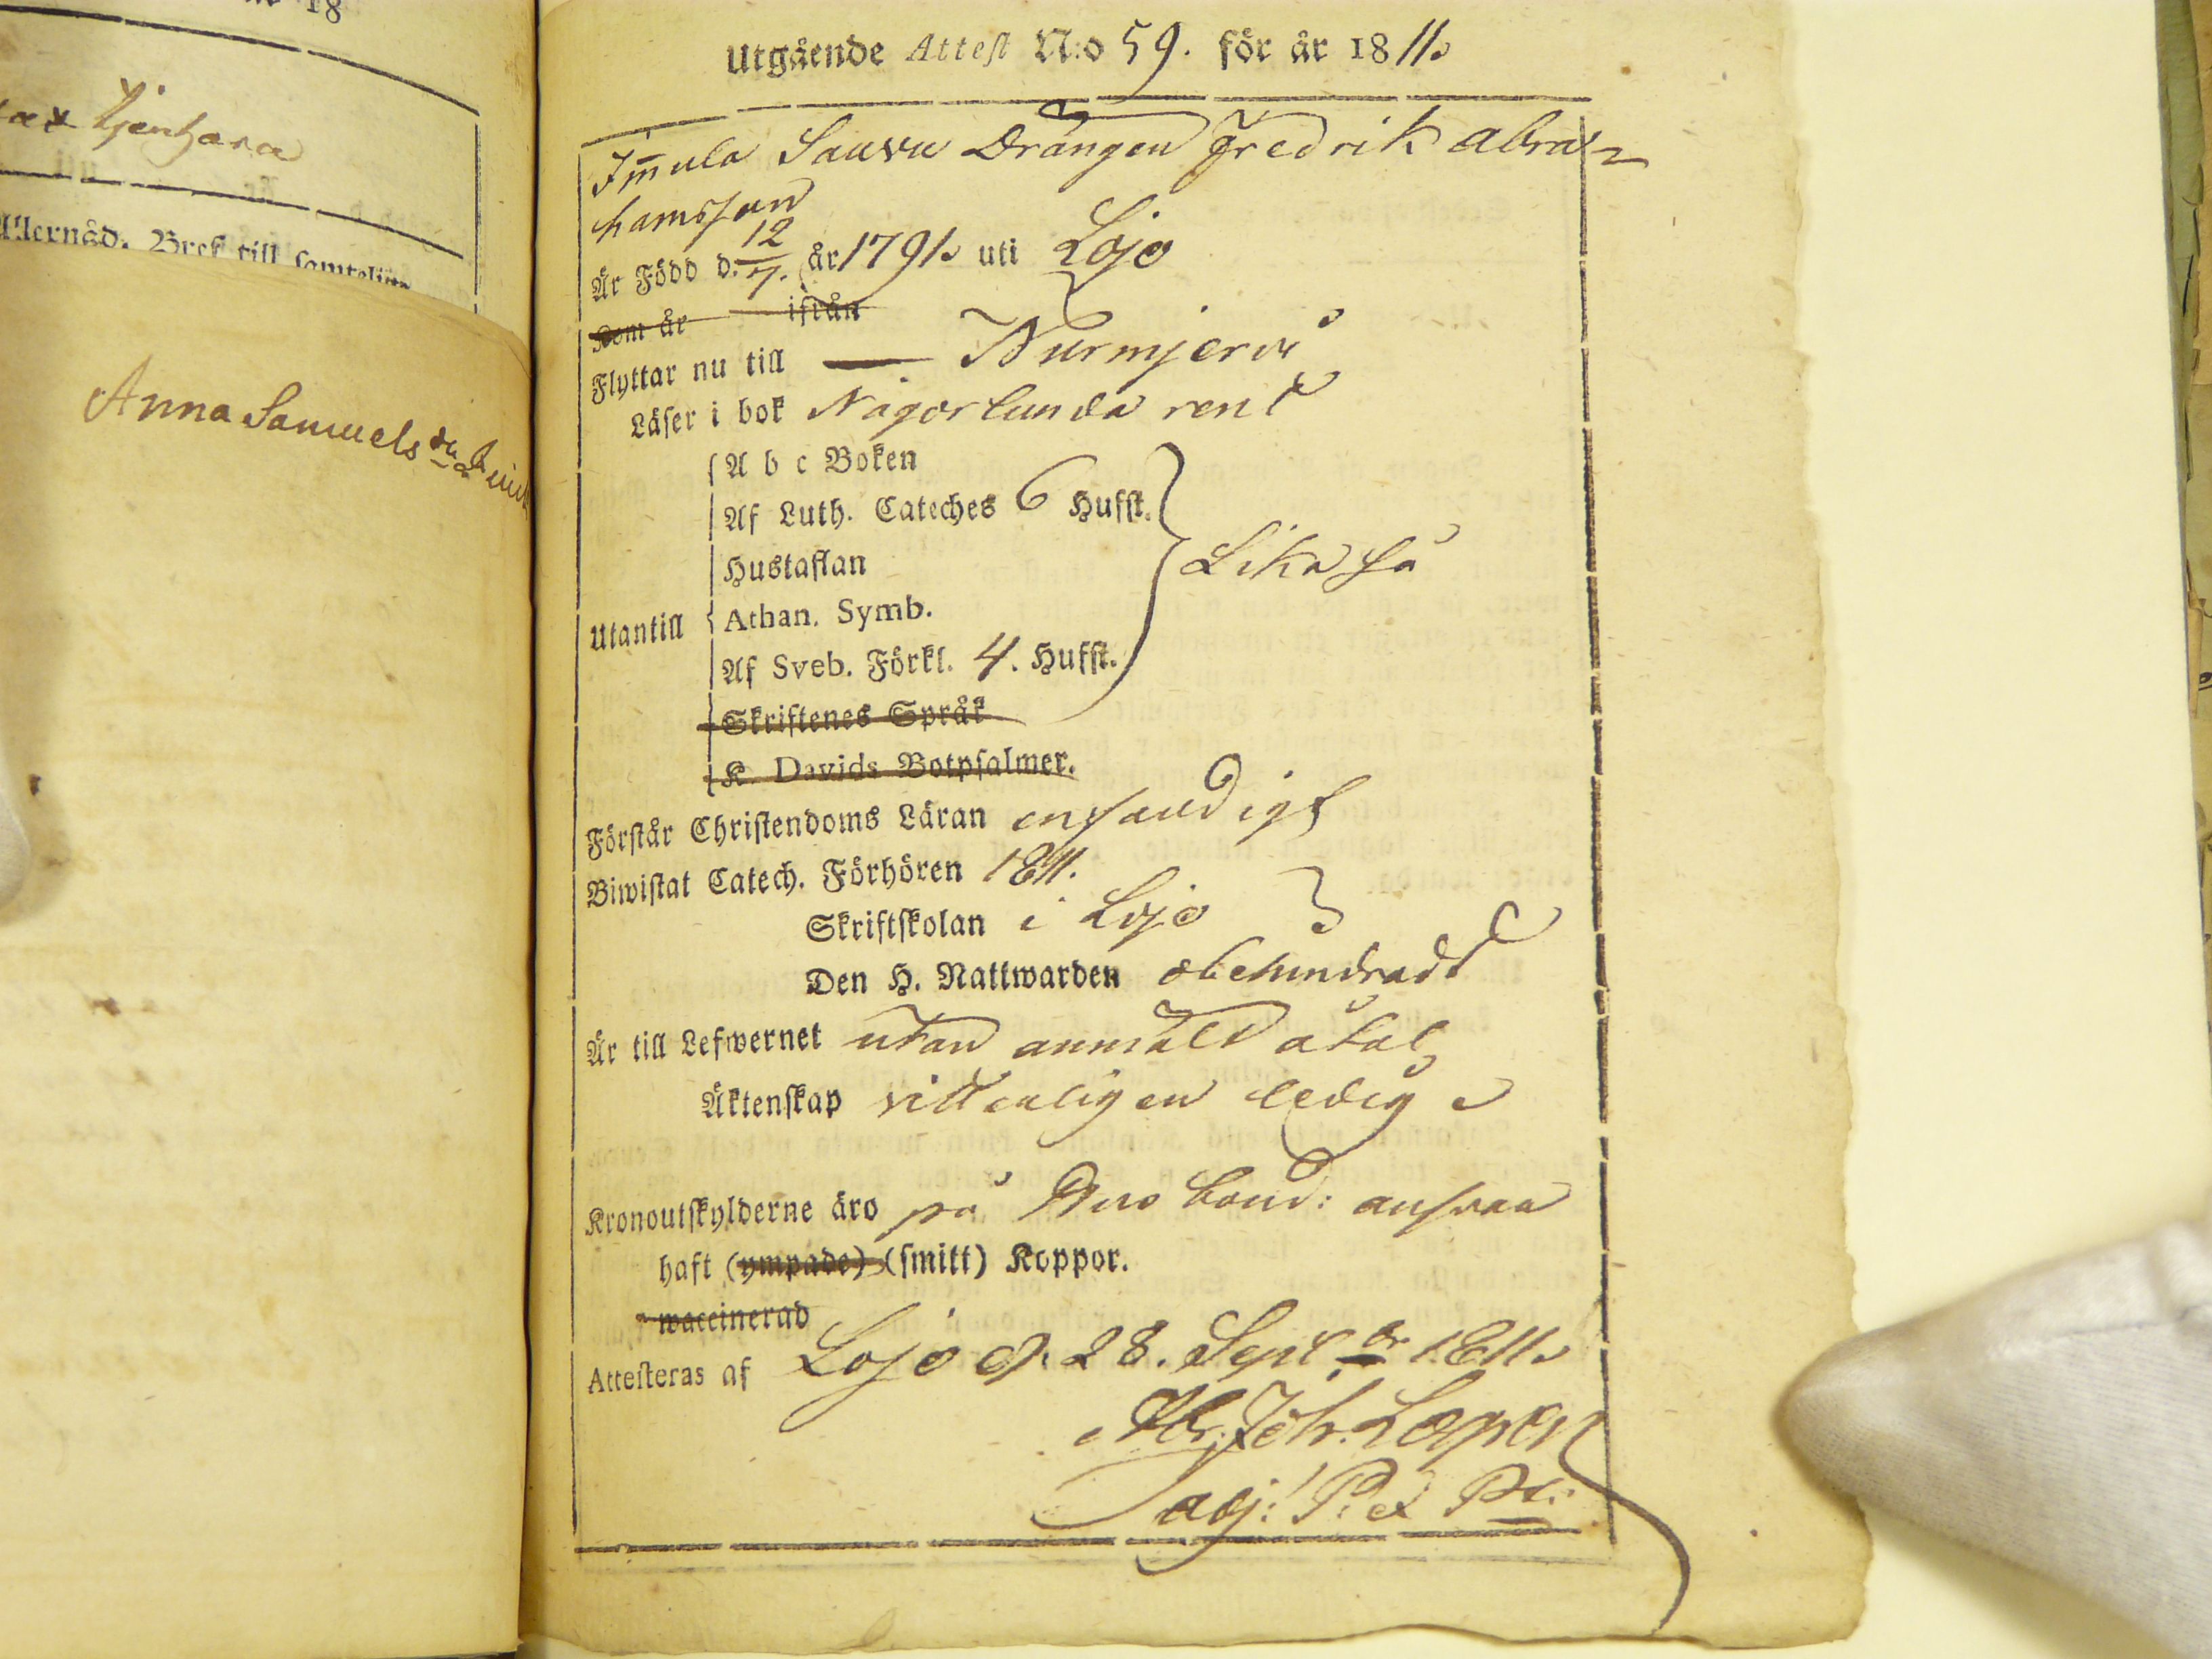 18
Tjenhana
Allernåd. Bref till samtelige
Anna Samuels dr
Utgående Attest N:o 59. för år 1811.
Immula Sauvu Drängen Fredrik Abra-
hamsson
Är Född d. 12/7. år 1791. uti Lojo
Kom år ifrån
Flyttar nu till — Nurmjervi
Läser i bok Någorlunda rent
A b c Boken
Af Luth. Cateches 6 Hufst.
Hustaflan
Lika så
Utantill Athan. Symb.
Af Sveb. Förkl. 4. Hufst.
Skriftenes Språk
K. Davids Botpsalmer.
Förstår Christendoms Läran enfaldigt
Biwistat Catech. Förhören 1811.
Skriftskolan i Lojo
Den H. Nattwarden obehindradt
Är till Lefwernet utan anmäld åtal
Äktenskap vitterligen ledig
Kronoutskylderne äro på bond: ansvar
haft (ympade) (smitt) Koppor.
waccinerad
Attesteras af Lojo d. 28. Sept br 1811.
Abr. Joh. Lagren
adj: P. et Pt: